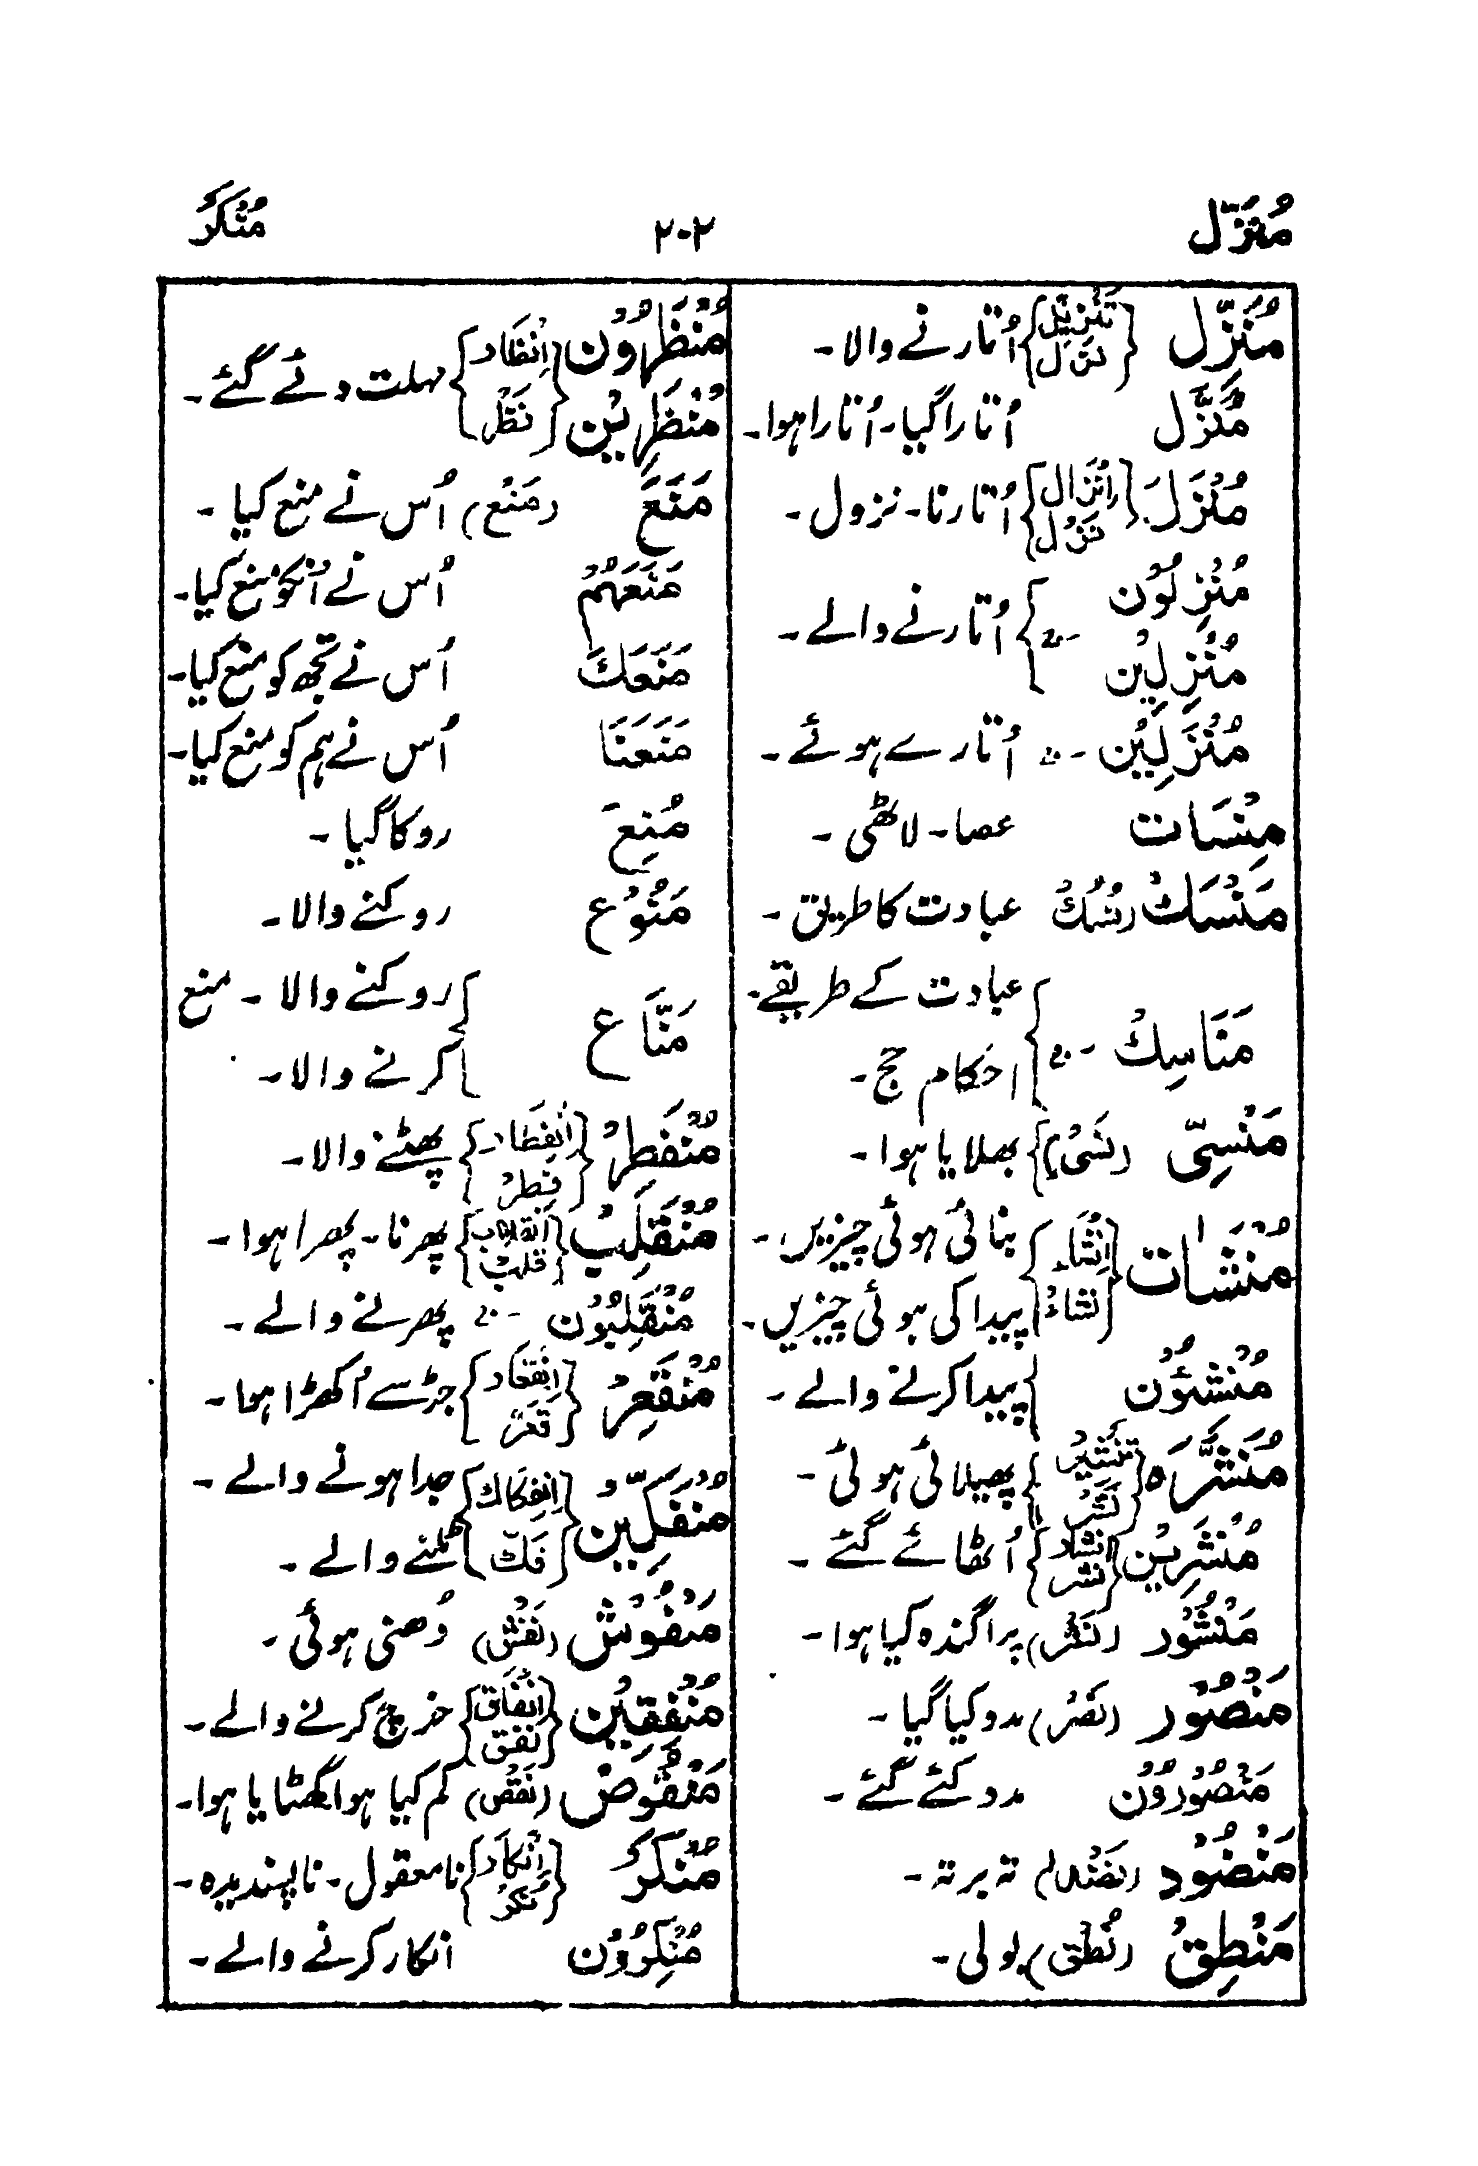 مُنَزِّل ۲۰۲ مُنْكَرُ
مُنَزِّل {تَنْزِیْل نزل} اُتارنے والا۔
مُنَزَّل اُتارا گیا۔ اُتارا ہوا۔
مُنْزَلَ {اِنْزال نزل} اُتارنا۔ نزول۔
مُنْزِلُوْن
مُنْزِلِیْن ۔ج } اُتارنے والے۔
مُنْزَلِیْن ۔ج اُتارے ہوئے۔
مِنْسَات عصا۔ لاٹھی۔
مَنْسَكْ (نُسُكْ) عبادت کا طریق۔
مَنَاسِكْ ۔ج } عبادت کے طریقے۔
احکام حج۔
مَنْسِیّ (نَسْیٌ) بھلایا ہوا۔
مُنْشَاٰت {اِنْشَاء نشاءُ} بنائی ہوئی چیزیں۔
پیدا کی ہوئی چیزیں۔
مُنْشِئُوْن پیدا کرنے والے۔
مُنَشَّرَہ {تَنْشِیْر نَشْر} پھیلائی ہوئی۔
مُنْشَرِیْن {اِنْشار نشر} اُٹھائے گئے۔
مَنْشُوْر (نَشْر) پراگندہ کیا ہوا۔
مَنْصُوْر (نَصْرُ) مدد کیا گیا۔
مَنْصُوْرُوْن مدد کئے گئے۔
مَنْضُوْد (نَضْد) تہ برتہ۔
مَنْطِقُ (نُطْق) بولی۔
مُنْظَرُوْن
مُنْظَرِیْن {اِنْظَار نَظْر} مہلت دئے گئے۔
مَنَعَ (مَنْع) اُس نے منع کیا۔
مَنَعَهُمْ اُس نے اُنکو منع کیا۔
مَنَعَكَ اُس نے تجھ کو منع کیا۔
مَنَعَنَا اُس نے ہم کو منع کیا۔
مُنِعَ روکا گیا۔
مَنُوْع روکنے والا۔
مَنَّاع } روکنے والا۔ منع
کرنے والا۔
مُنْفَطِرْ {اِنْفِطَار فطرْ} پھٹنے والا۔
مُنْقَلِبْ {انقلاب قلبْ} پھرنا۔ پھرا ہوا۔
مُنْقَلِبُوْن ۔ج پھرنے والے۔
مُنْقَعِرْ {اِنْقِعَار قَعْرْ} جڑ سے اُکھڑا ہوا۔
مُنْفَكِّیْن {اِنْفِكَاك فَكّ} جدا ہونے والے۔
ٹلنے والے۔
مَنْفُوْش (نَفْش) دُھنی ہوئی۔
مُنْفِقِیْن {اِنْفَاق نفق} خرچ کرنے والے۔
مَنْقُوْصْ (نَقْص) کم کیا ہوا گھٹایا ہوا۔
مُنْكَرُ {اِنْكَار نُكْرُ} نامعقول۔ ناپسندیدہ۔
مُنْكِرُوْن انکار کرنے والے۔